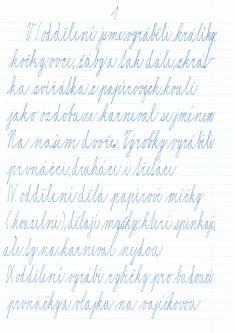 1
V I. oddělení jsme vyráběli králíky,
kočky, ovce, žáby a tak dále, zkrát-
ka zvířátka z papírových koulí
jako ozdobu na karneval se jménem
Na našem dvoře. Výrobky vyráběli
prvňáčci, druháci i třeťáci
V oddělení dělá papírové míčky
(kouzelní), dělají myšky, které spinkají,
ale ty na karneval nejdou
V oddělení vyrábí rybičky pro budoucí
prvňáčky a vlajka na vajíčkovou